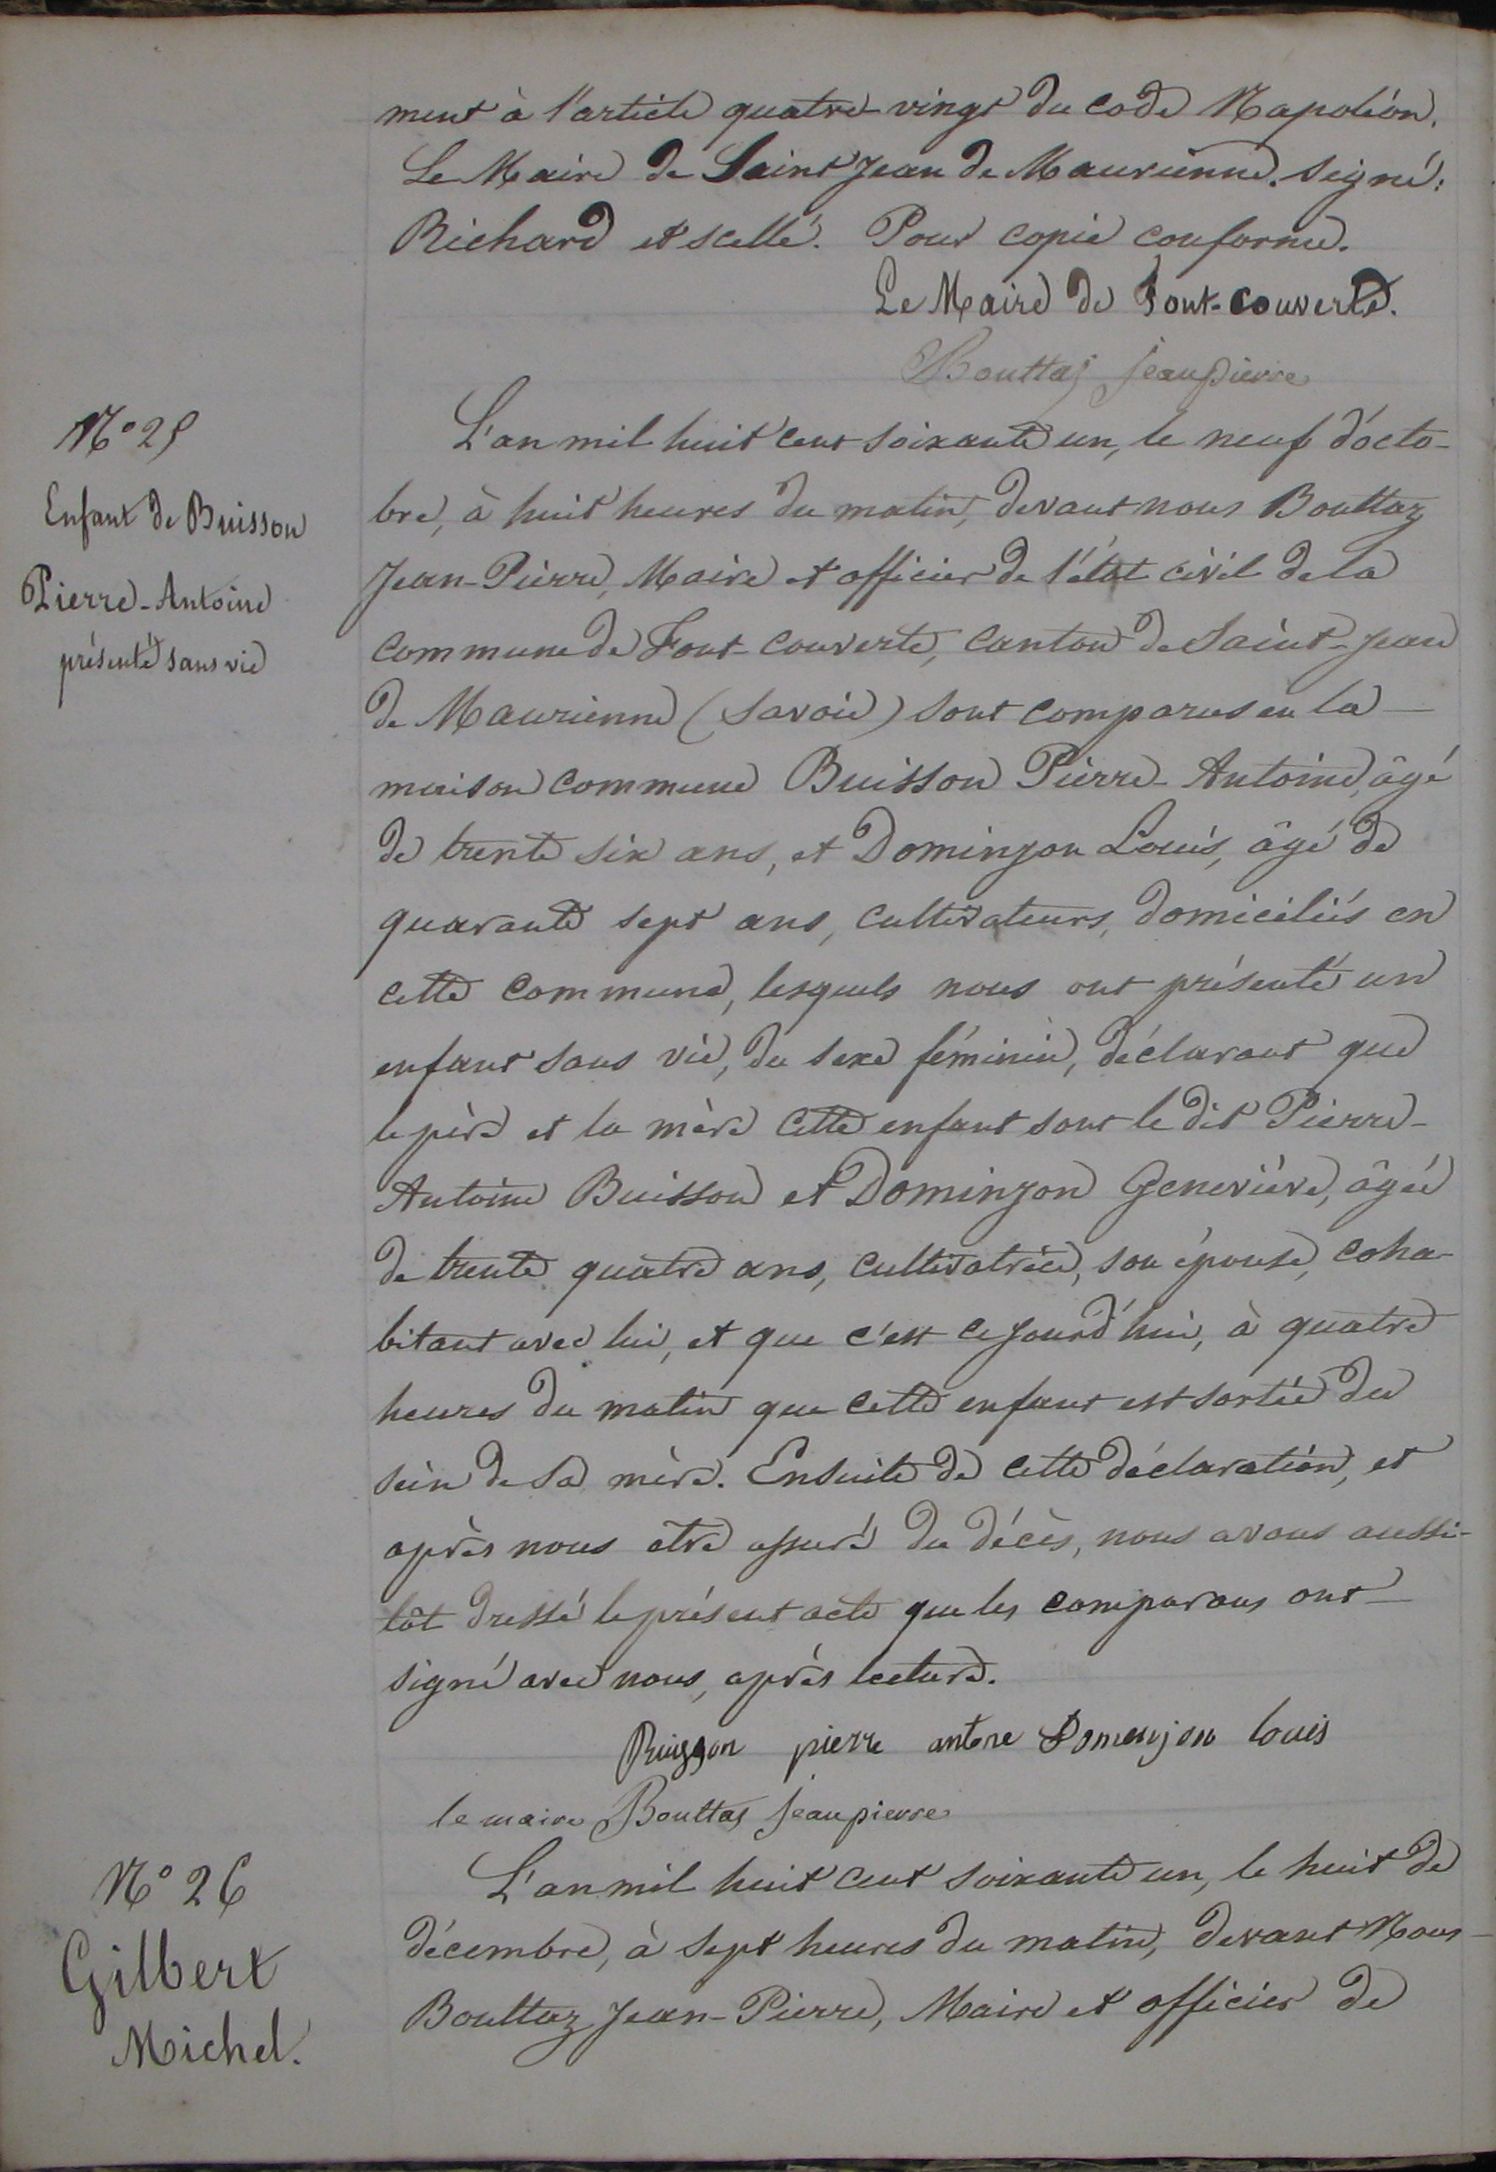 ment à l'article quatre vingt du code Napoléon.
Le Maire de Saint Jean de Maurienne. signé:
Richard et scellé. Pour copie conforme.
Le Maire de Font-couverte.
Bouttaz jeanpierre
N° 25
Enfant de Buisson
Pierre-Antoine
présenté sans vie
L'an mil huit cent soixante un, le neuf d'octo-
bre, à huit heures du matin, devant nous Bouttaz
Jean-Pierre, Maire et officier de l'état civil de la
commune de Font-couverte, canton de Saint-Jean
de Maurienne (Savoie) sont comparus en la
maison commune Buisson Pierre-Antoine, âgé
de trente six ans, et Dominjon Louis, âgé de
quarante sept ans, cultivateurs, domiciliés en
cette commune, lesquels nous ont présenté un
enfant sans vie, du sexe féminin, déclarant que
le père et la mère cette enfant sont le dit Pierre-
Antoine Buisson et Dominjon Geneviève, âgée
de trente quatre ans, cultivatrice, son épouse, coha-
bitant avec lui, et que c'est cejourd'hui, à quatre
heures du matin que cette enfant est sortie du
sein de sa mère. Ensuite de cette déclaration, et
après nous être assuré du décès, nous avons aussi-
tôt dressé le présent acte que les comparans ont
signé avec nous, après lecture.
Buisson pierre antone Domenjon louis
le maire Bouttaz jeanpierre
N° 26
Gilbert
Michel.
L'an mil huit cent soixante un, le huit de
décembre, à sept heures du matin, devant Nous
Bouttaz Jean-Pierre, Maire et officier de